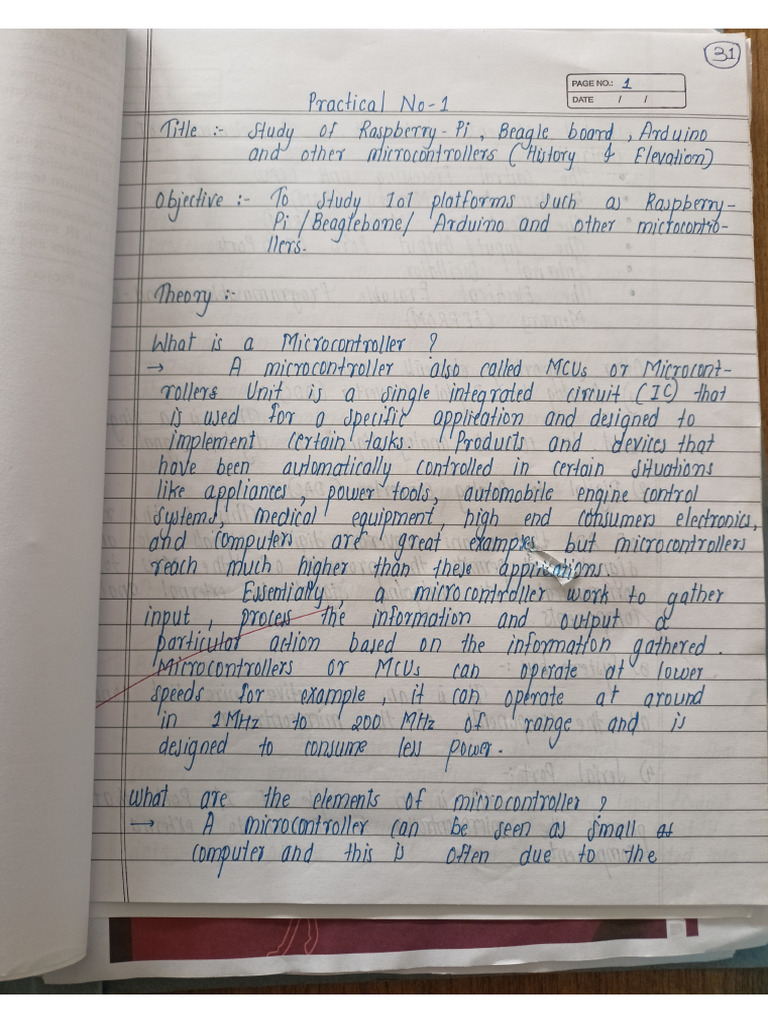 31
PAGE NO.: 1
DATE / /
Practical No-1
Title :- Study of Raspberry-Pi, Beagle board, Arduino
and other microcontrollers (History & Elevation)
Objective :- To study IoI platforms such as Raspberry-
Pi /Beaglebone/ Arduino and other microcontro-
llers.
Theory :-
What is a Microcontroller ?
→ A microcontroller also called MCUs or Microcont-
rollers Unit is a single integrated circuit (IC) that
is used for a specific application and designed to
implement certain tasks. Products and devices that
have been automatically controlled in certain situations
like appliances, power tools, automobile engine control
systems, medical equipment, high end consumers electronics,
and computers are great examples but microcontrollers
reach much higher than these applications
Essentially, a microcontroller work to gather
input, process the information and output a
particular action based on the information gathered.
Microcontrollers or MCUs can operate at lower
speeds for example, it can operate at around
in 1MHz to 200 MHz of range and is
designed to consume less power.
What are the elements of microcontroller ?
→ A microcontroller can be seen as small at
computer and this is often due to the